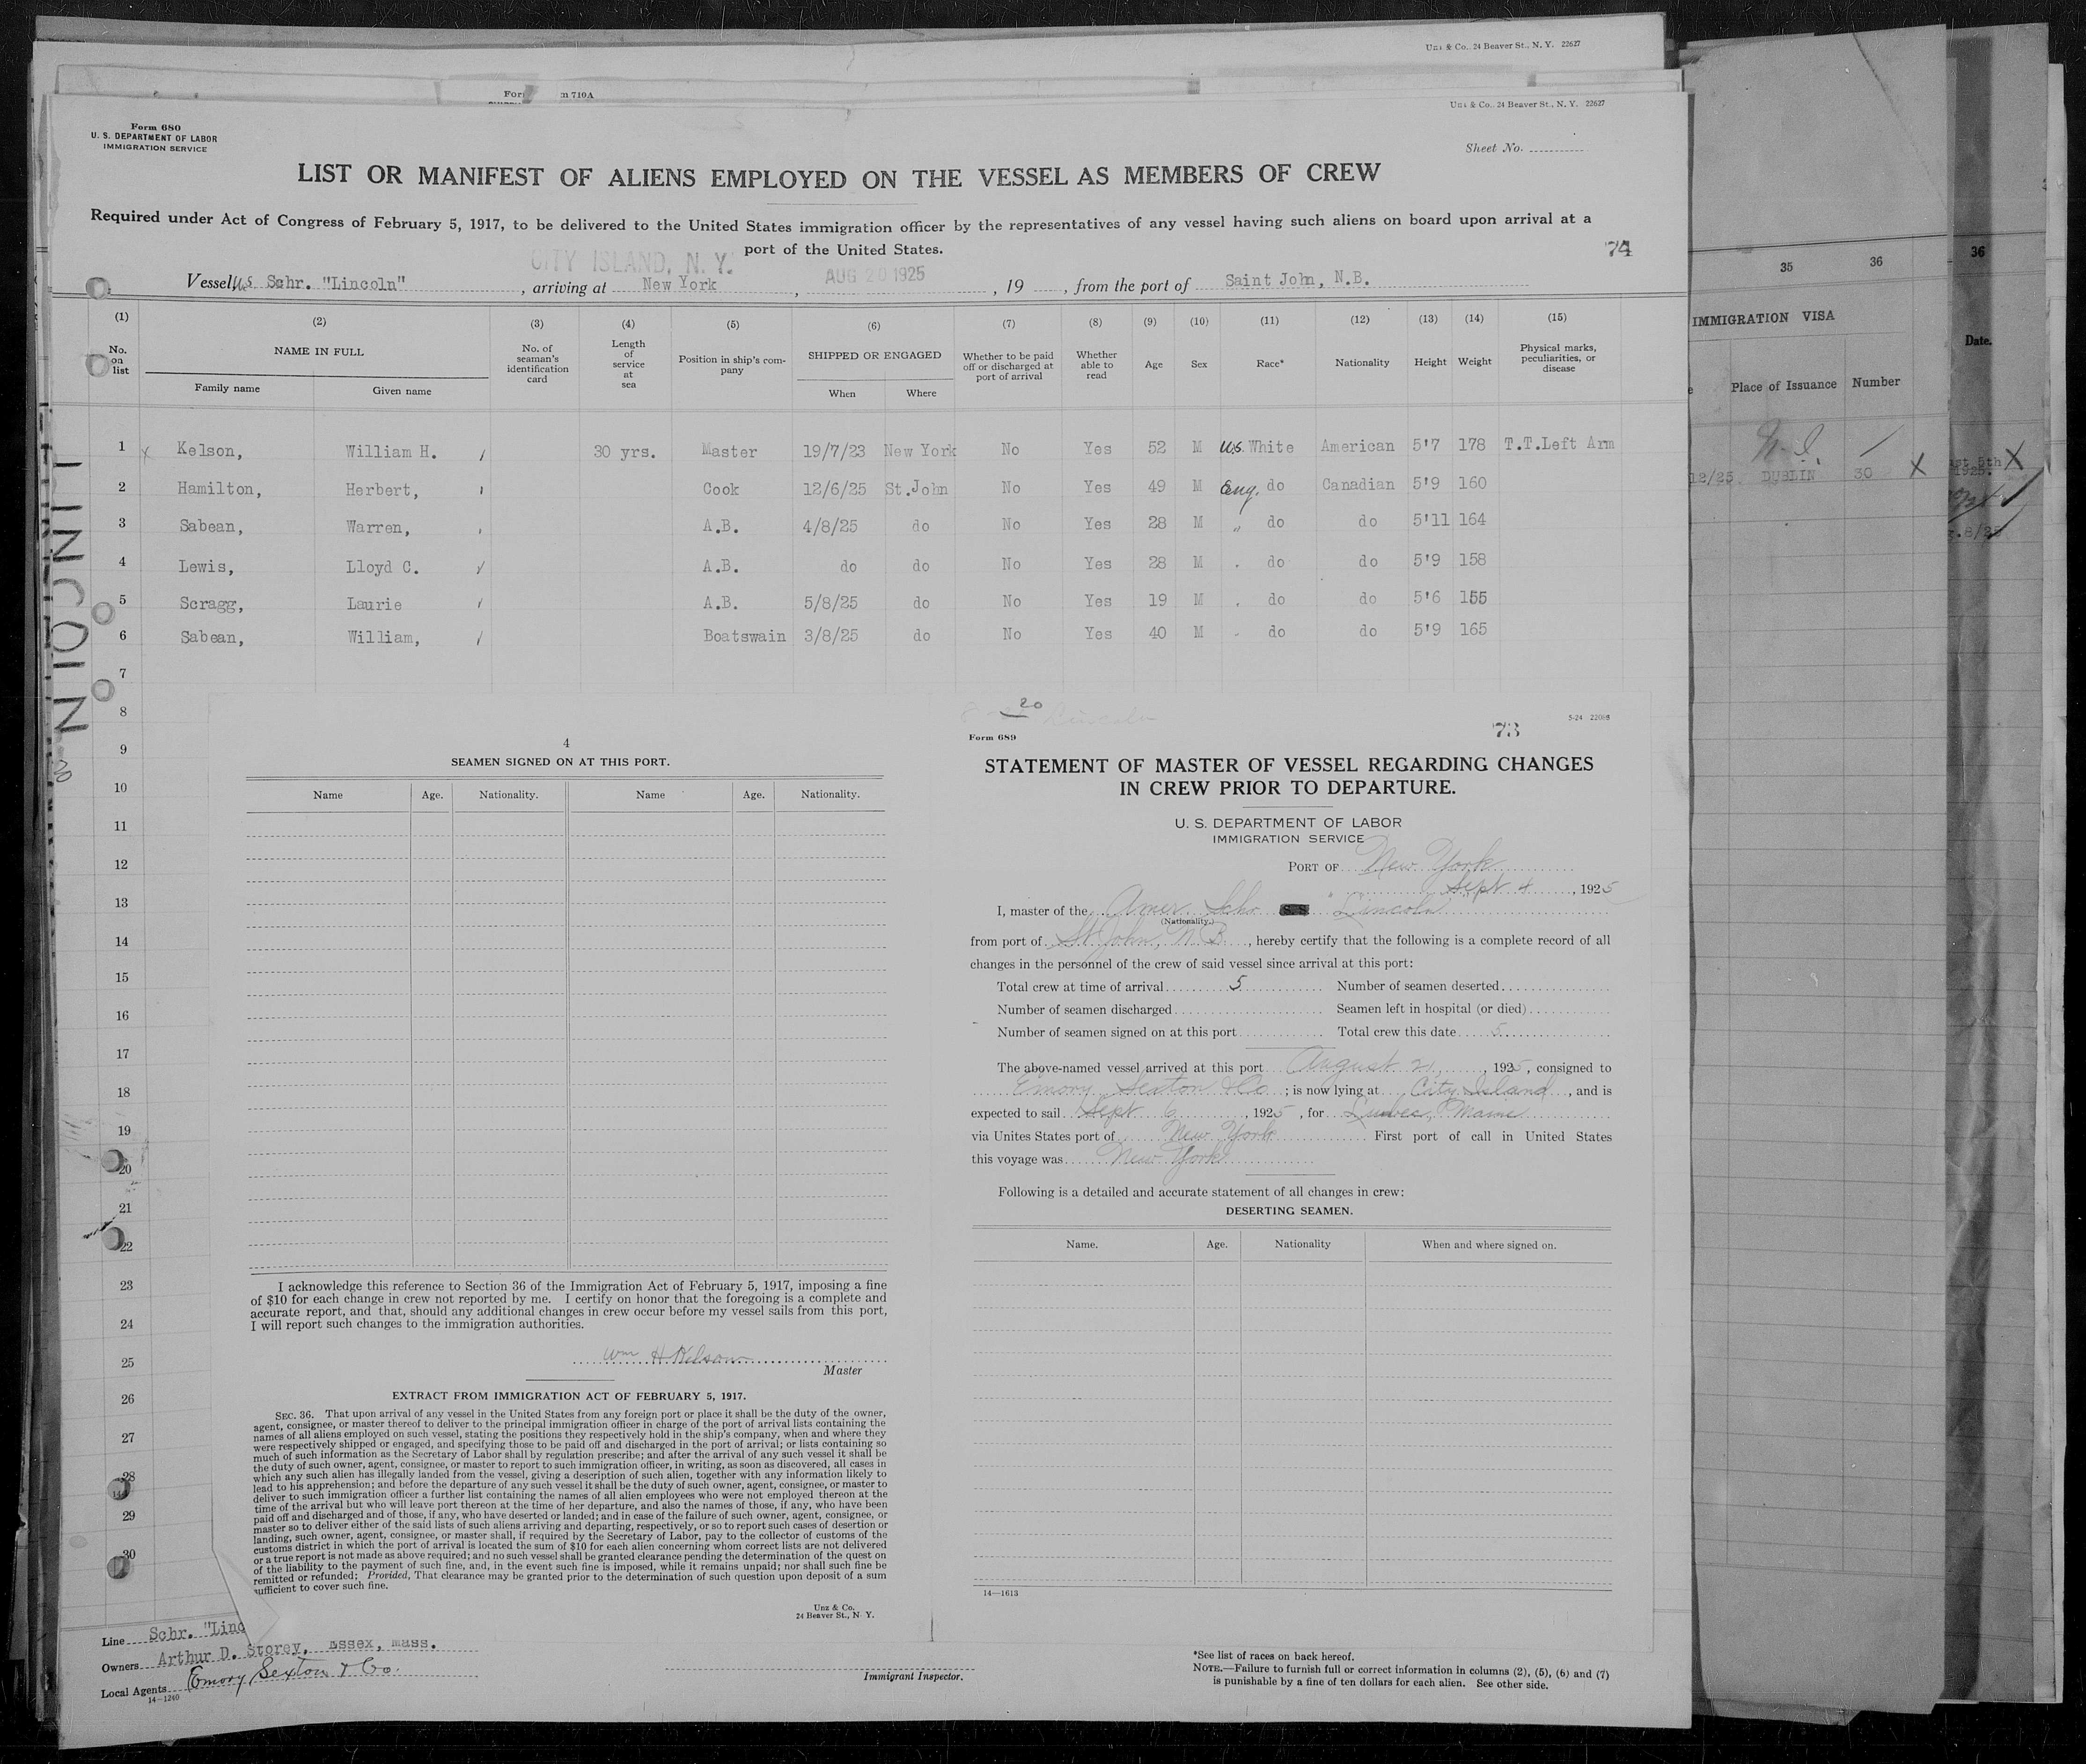 Unz & Co., 24 Beaver St., N. Y. 22627
Form 710A
Unz & Co., 24 Beaver St., N. Y. 22627
Form 680
U. S. DEPARTMENT OF LABOR
IMMIGRATION SERVICE
Sheet No.
LIST OR MANIFEST OF ALIENS EMPLOYED ON THE VESSEL AS MEMBERS OF CREW
Required under Act of Congress of February 5, 1917, to be delivered to the United States immigration officer by the representatives of any vessel having such aliens on board upon arrival at a
port of the United States.
74
CITY ISLAND, N. Y. AUG 20 1925
Vessel U.S Schr. "Lincoln", arriving at New York, , 19 , from the port of Saint John, N.B.
(1) (2) (3) (4) (5) (6) (7) (8) (9) (10) (11) (12) (13) (14) (15)
No. on list
NAME IN FULL
Family name Given name
No. of seaman's identification card
Length of service at sea
Position in ship's company
SHIPPED OR ENGAGED
When Where
Whether to be paid off or discharged at port of arrival
Whether able to read
Age Sex Race* Nationality Height Weight
Physical marks, peculiarities, or disease
1 x Kelson, William H. 30 yrs. Master 19/7/23 New York No Yes 52 M U.S. White American 5'7 178 T.T.Left Arm
2 Hamilton, Herbert, Cook 12/6/25 St.John No Yes 49 M Eng. do Canadian 5'9 160
3 Sabean, Warren, A.B. 4/8/25 do No Yes 28 M " do do 5'11 164
4 Lewis, Lloyd C. A.B. do do No Yes 28 M do do 5'9 158
5 Scragg, Laurie A.B. 5/8/25 do No Yes 19 M do do 5'6 155
6 Sabean, William, Boatswain 3/8/25 do No Yes 40 M do do 5'9 165
7
8
9
10
11
12
13
14
15
16
17
18
19
20
21
22
23
24
25
26
27
28
29
30
LINCOLN
4
SEAMEN SIGNED ON AT THIS PORT.
Name Age. Nationality. Name Age. Nationality.
I acknowledge this reference to Section 36 of the Immigration Act of February 5, 1917, imposing a fine
of $10 for each change in crew not reported by me. I certify on honor that the foregoing is a complete and
accurate report, and that, should any additional changes in crew occur before my vessel sails from this port,
I will report such changes to the immigration authorities.
Wm H Kelson
Master
EXTRACT FROM IMMIGRATION ACT OF FEBRUARY 5, 1917.
SEC. 36. That upon arrival of any vessel in the United States from any foreign port or place it shall be the duty of the owner,
agent, consignee, or master thereof to deliver to the principal immigration officer in charge of the port of arrival lists containing the
names of all aliens employed on such vessel, stating the positions they respectively hold in the ship's company, when and where they
were respectively shipped or engaged, and specifying those to be paid off and discharged in the port of arrival; or lists containing so
much of such information as the Secretary of Labor shall by regulation prescribe; and after the arrival of any such vessel it shall be
the duty of such owner, agent, consignee, or master to report to such immigration officer, in writing, as soon as discovered, all cases in
which any such alien has illegally landed from the vessel, giving a description of such alien, together with any information likely to
lead to his apprehension; and before the departure of any such vessel it shall be the duty of such owner, agent, consignee, or master to
deliver to such immigration officer a further list containing the names of all alien employees who were not employed thereon at the
time of the arrival but who will leave port thereon at the time of her departure, and also the names of those, if any, who have been
paid off and discharged and of those, if any, who have deserted or landed; and in case of the failure of such owner, agent, consignee, or
master so to deliver either of the said lists of such aliens arriving and departing, respectively, or so to report such cases of desertion or
landing, such owner, agent, consignee, or master shall, if required by the Secretary of Labor, pay to the collector of customs of the
customs district in which the port of arrival is located the sum of $10 for each alien concerning whom correct lists are not delivered
or a true report is not made as above required; and no such vessel shall be granted clearance pending the determination of the quest on
of the liability to the payment of such fine, and, in the event such fine is imposed, while it remains unpaid; nor shall such fine be
remitted or refunded; Provided, That clearance may be granted prior to the determination of such question upon deposit of a sum
sufficient to cover such fine.
Unz & Co.
24 Beaver St., N. Y.
20
Lincoln
Form 689
73
5-24
STATEMENT OF MASTER OF VESSEL REGARDING CHANGES
IN CREW PRIOR TO DEPARTURE.
U. S. DEPARTMENT OF LABOR
IMMIGRATION SERVICE
PORT OF New York
Sept 4, 1925
I, master of the Amer. Schr "Lincoln"
(Nationality.)
from port of St John, N B., hereby certify that the following is a complete record of all
changes in the personnel of the crew of said vessel since arrival at this port:
Total crew at time of arrival 5 Number of seamen deserted
Number of seamen discharged Seamen left in hospital (or died)
Number of seamen signed on at this port Total crew this date 5
The above-named vessel arrived at this port August 21, 1925, consigned to
Emory Sexton & Co; is now lying at City Island, and is
expected to sail Sept 6, 1925, for Lubec, Maine
via Unites States port of New York First port of call in United States
this voyage was New York
Following is a detailed and accurate statement of all changes in crew:
DESERTING SEAMEN.
Name. Age. Nationality When and where signed on.
14—1613
Line Schr. "Linc
Owners Arthur D. Storey, Essex, Mass.
Local Agents Emory Sexton & Co.
14-1240
Immigrant Inspector.
*See list of races on back hereof.
NOTE.—Failure to furnish full or correct information in columns (2), (5), (6) and (7)
is punishable by a fine of ten dollars for each alien. See other side.
35 36
IMMIGRATION VISA
Place of Issuance Number
12/25 DUBLIN 30 X
36
Date.